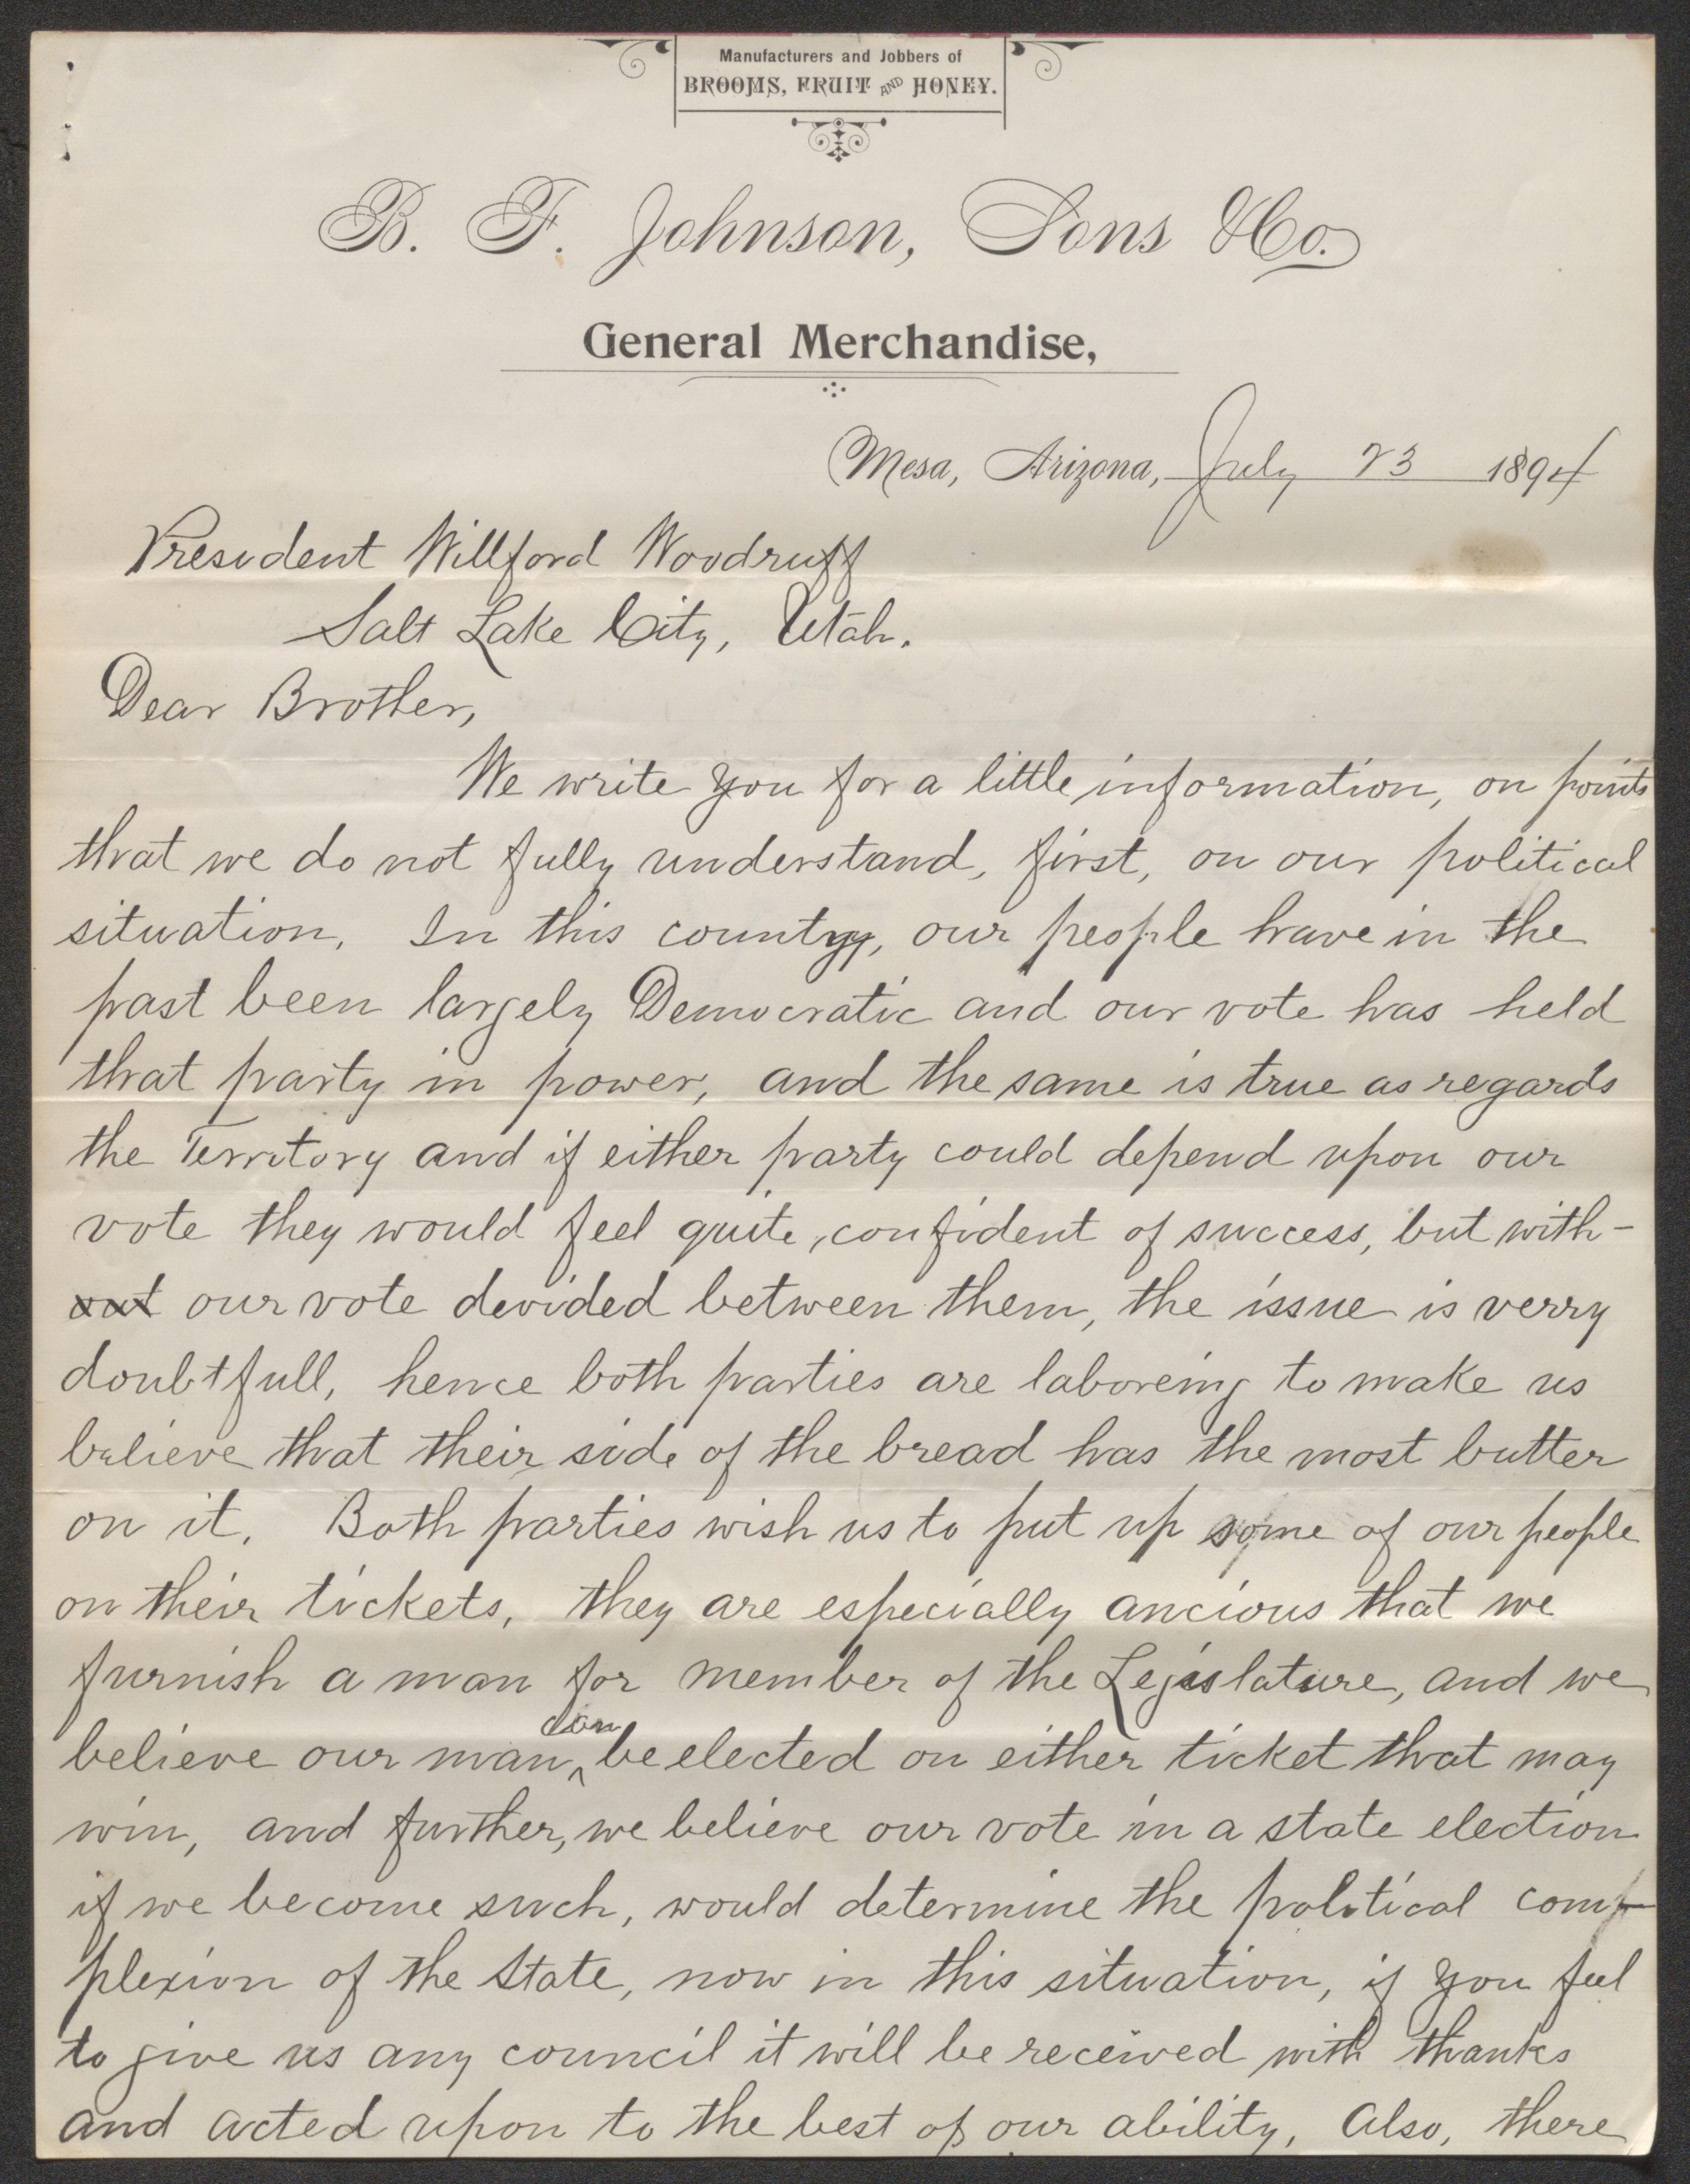 Manufacturers and Jobbers of
BROOMS, FRUIT AND HONEY.
B. F. Johnson, Sons & Co.
General Merchandise,
Mesa, Arizona, July 23 1894
President Willford Woodruff
Salt Lake City, Utah.
Dear Brother,
We write you for a little information, on points
that we do not fully understand, first, on our political
situation. In this country, our people have in the
past been largely Democratic and our vote has held
that party in power, and the same is true as regards
the Territory and if either party could depend upon our
vote they would feel quite, confident of success, but with-
out our vote devided between them, the issue is verry
doubtfull, hence both parties are laboreing to make us
believe that their side of the bread has the most butter
on it. Both parties wish us to put up some of our people
on their tickets, they are especially ancious that we
furnish a man for member of the Legislature, and we
believe our man can be elected on either ticket that may
win, and further, we believe our vote in a state election
if we become such, would determine the political com-
plexion of the State, now in this situation, if you feel
to give us any council it will be received with thanks
and acted upon to the best of our ability, Also, there